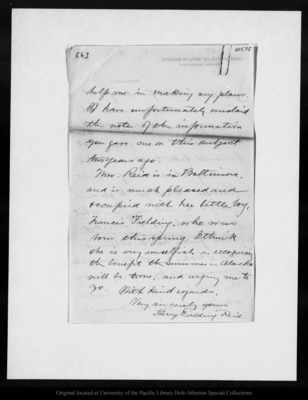 help me in making my plans.
I have unfortunately mislaid
the note of the information
you gave me on this subject
two years ago.
Mrs. Reid is in Baltimore,
and is much pleased and
occupied with her little boy,
Francis Fielding, who was
born this spring. I think
she is very unselfish in
the benefit the summer in Alaska
will be to me, and urging me to
go. With kind regards,
Very sincerely yours
Harry Fielding Reid
Original located at University of the Pacific Library Holt-Atherton Special Collections